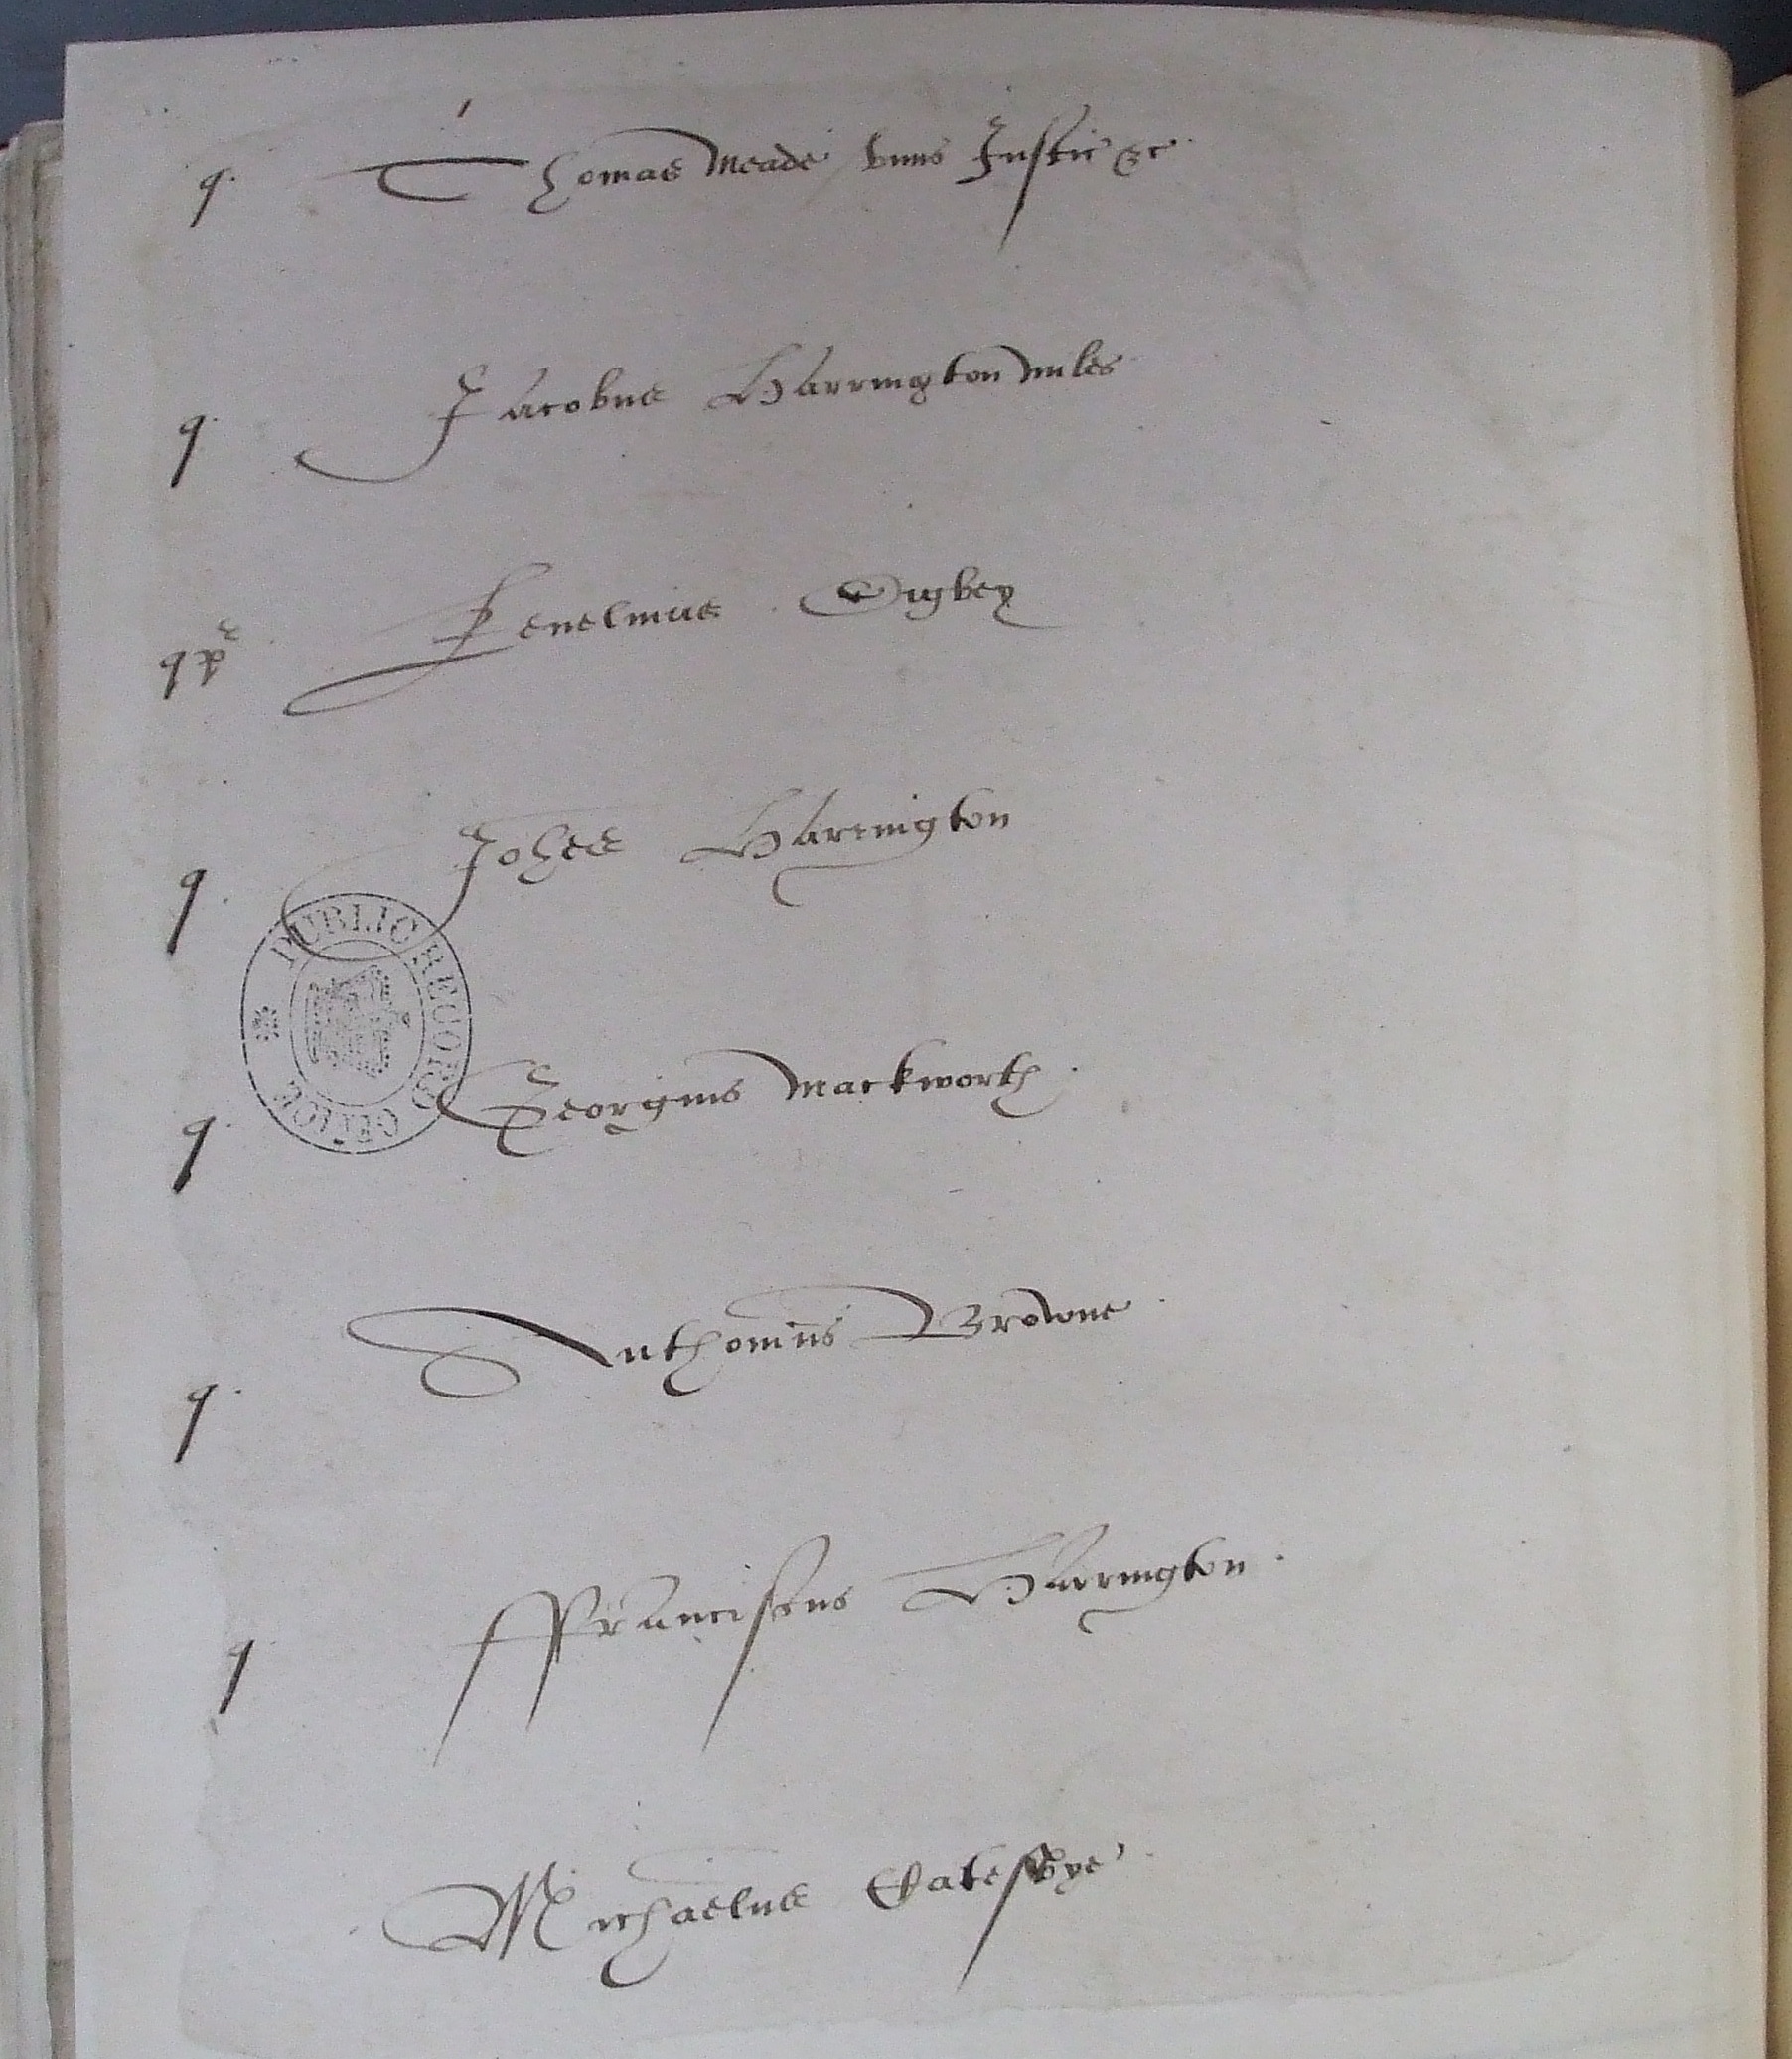 q. Thomas Meade vnus Justic &c.
q. Jacobus Harrington miles
q pr Kenelmus Digbey
q. Johes Harrington
PUBLIC RECORD OFFICE
q. Georgius Mackworth.
q. Anthonius Browne.
q ffranciscus Harington.
Michaelus Catesbye